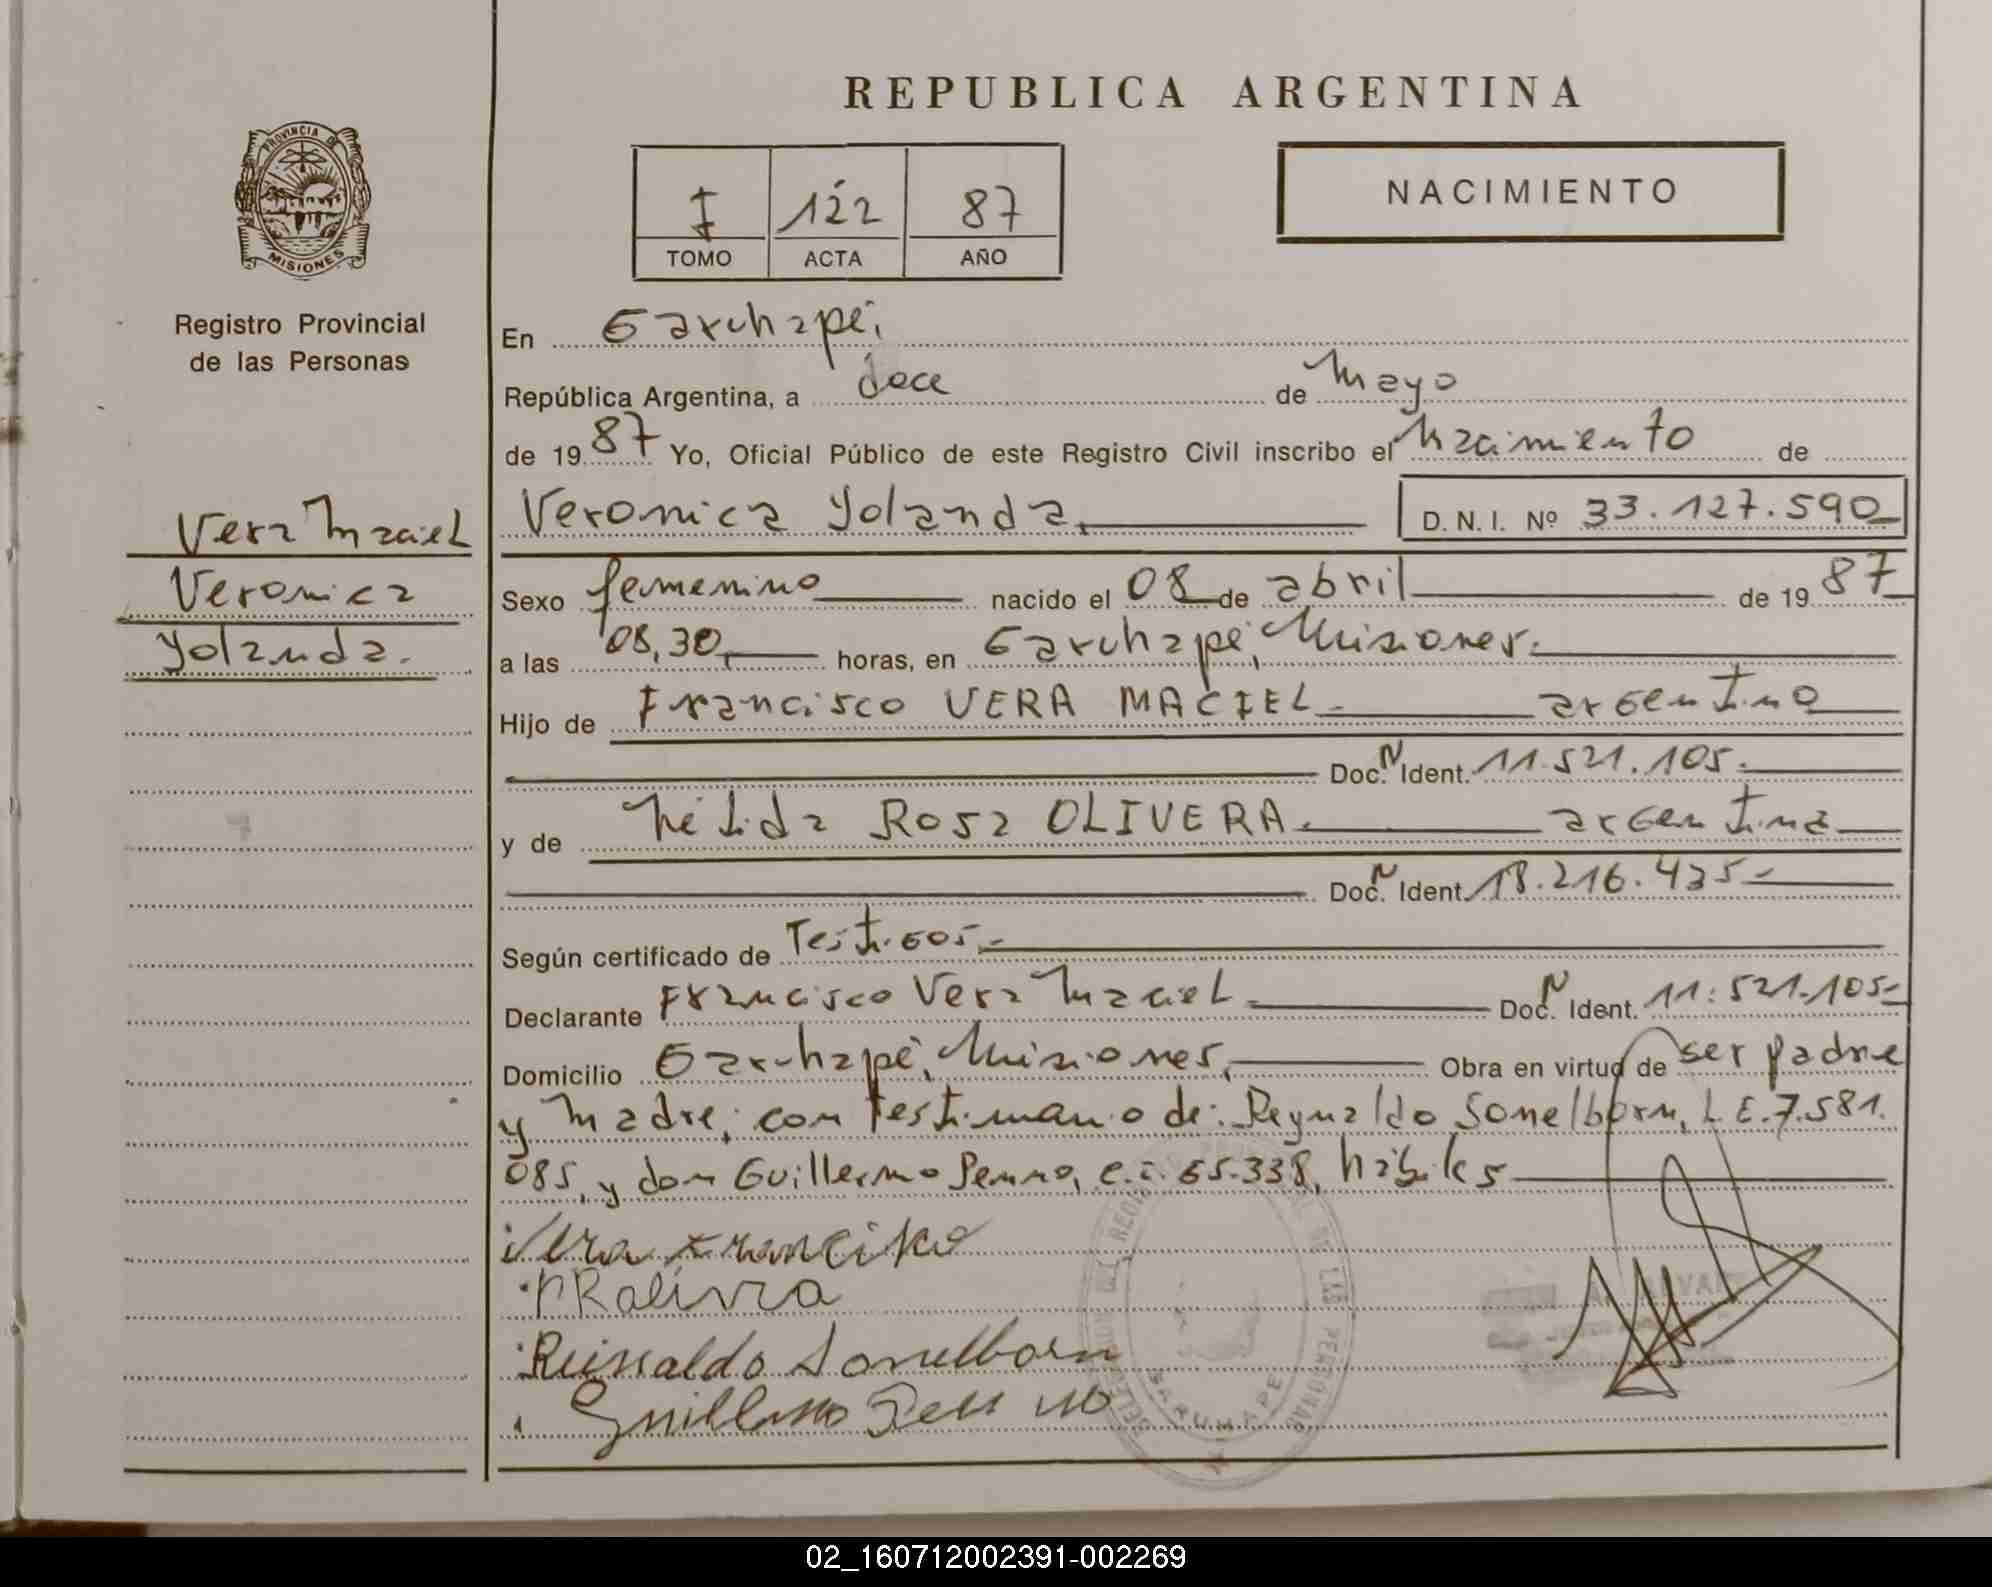 REPUBLICA ARGENTINA
PROVINCIA DE
MISIONES
Registro Provincial
de las Personas
I 122 87
TOMO ACTA AÑO
NACIMIENTO
En Garuhapé,
República Argentina, a doce de Mayo
de 1987 Yo, Oficial Público de este Registro Civil inscribo el Nacimiento de
Vera Maciel
Veronica
Yolanda.
Veronica Yolanda, D. N. I. Nº 33.127.590
Sexo femenino nacido el 08 de abril de 1987
a las 08,30 horas, en Garuhapé, Misiones.
Hijo de Francisco VERA MACIEL argentino
Doc. N Ident. 11.521.105.
y de Nélida Rosa OLIVERA. argentina
Doc. N Ident. 18.216.435
Según certificado de Testigos.
Declarante Francisco Vera Maciel Doc. N Ident. 11.521.105
Domicilio Garuhapé, Misiones, Obra en virtud de ser padre
y madre; con testimonio de: Reynaldo Sonelborn, L.E. 7.581.
085, y don Guillermo Penno, c.i. 65.338, hábiles
Vera Francisko
NRolivra
Reinaldo Sonelborn
Guillermo Penno
GARUHAPE
DE LAS PERSONAS
02_160712002391-002269